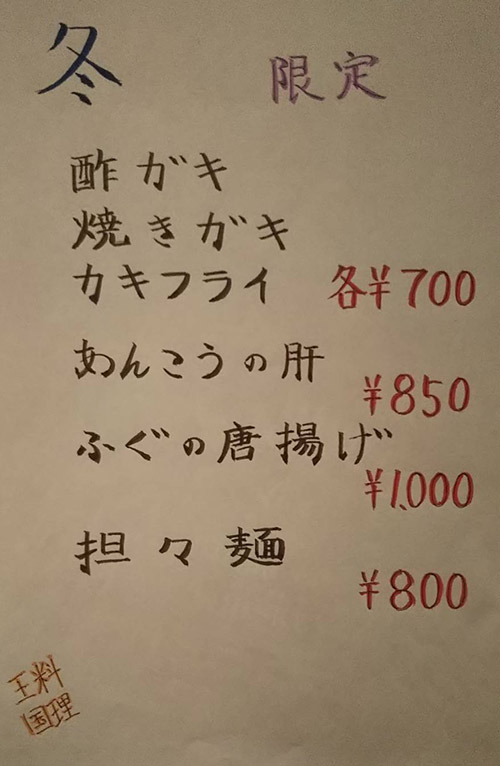 冬 限定
酢ガキ
焼きガキ
カキフライ 各¥700
あんこうの肝
¥850
ふぐの唐揚げ
¥1,000
担々麺
¥800
王料
国理